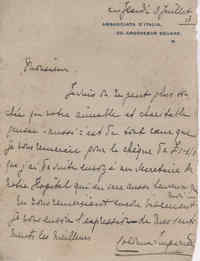 Jeudi 8 Juillet
AMBASCIATA D'ITALIA,
20, GROSVENOR SQUARE.
W.
Monsieur
on ne peut plus
que votre aimable et charitable
aussi c'est de tout cœur que
je vous remercie pour le chèque de
que j'ai de suite envoyé au Secrétaire de
notre Hopital qui en sera aussi heureux
En vous remerciant encore vivement
je vous envoie l'expression de mes senti-
ments les meilleurs
Imperiali